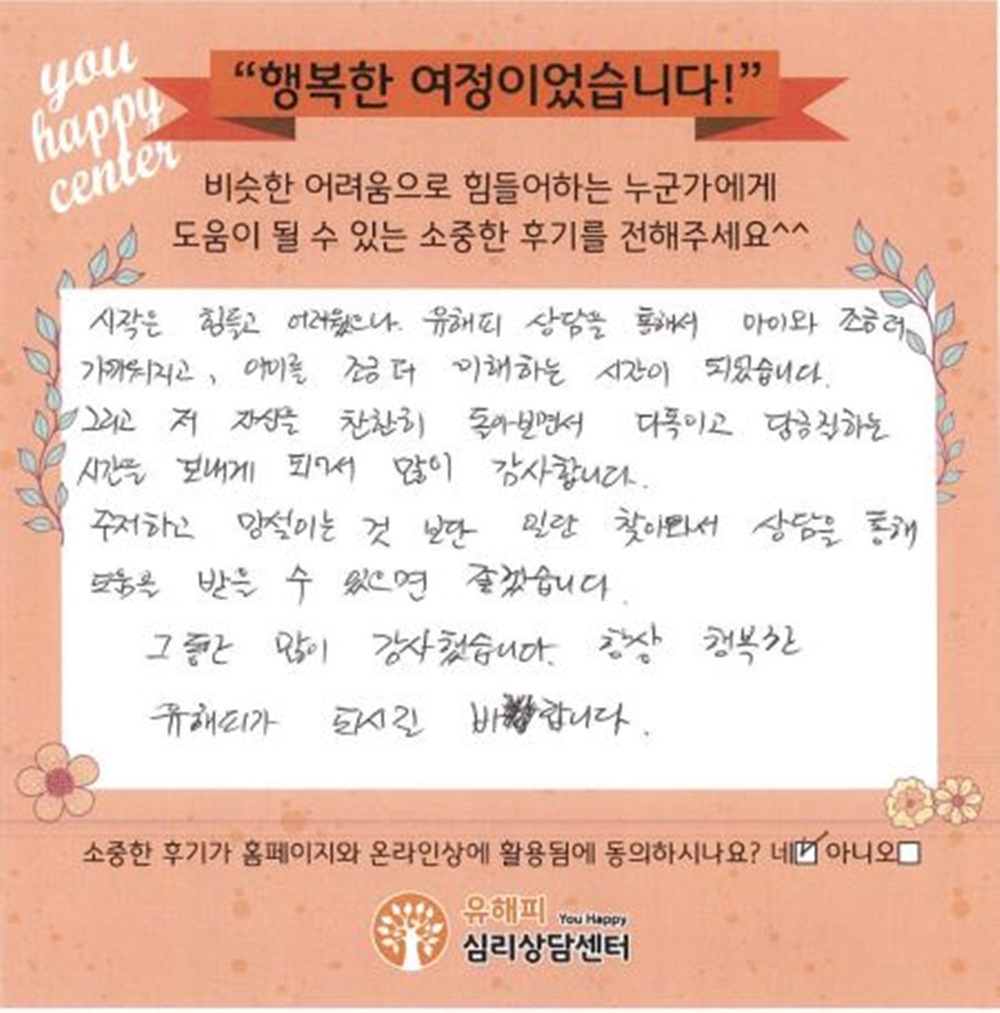 you
happy
center
“행복한 여정이었습니다!”
비슷한 어려움으로 힘들어하는 누군가에게
도움이 될 수 있는 소중한 후기를 전해주세요^^
시작은 힘들고 어려웠으나. 유해피 상담을 통해서 아이와 조금더
가까워지고, 아이를 조금 더 이해하는 시간이 되었습니다.
그리고 저 자신을 찬찬히 돌아보면서 다독이고 담금질하는
시간을 보내게 되어서 많이 감사합니다.
주저하고 망설이는 것 보단 일단 찾아와서 상담을 통해
도움을 받을 수 있으면 좋겠습니다.
그동안 많이 감사했습니다. 항상 행복한
유해피가 되시길 바랍니다.
소중한 후기가 홈페이지와 온라인상에 활용됨에 동의하시나요? 네 아니오
유해피 You Happy
심리상담센터